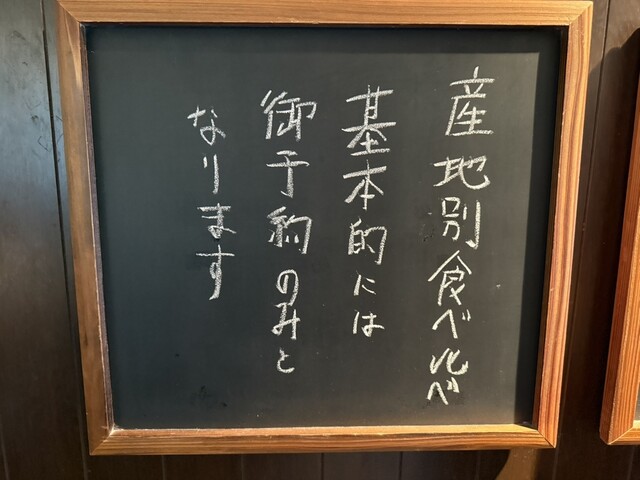 産地別食べ比べ
基本的には
御予約のみと
なります